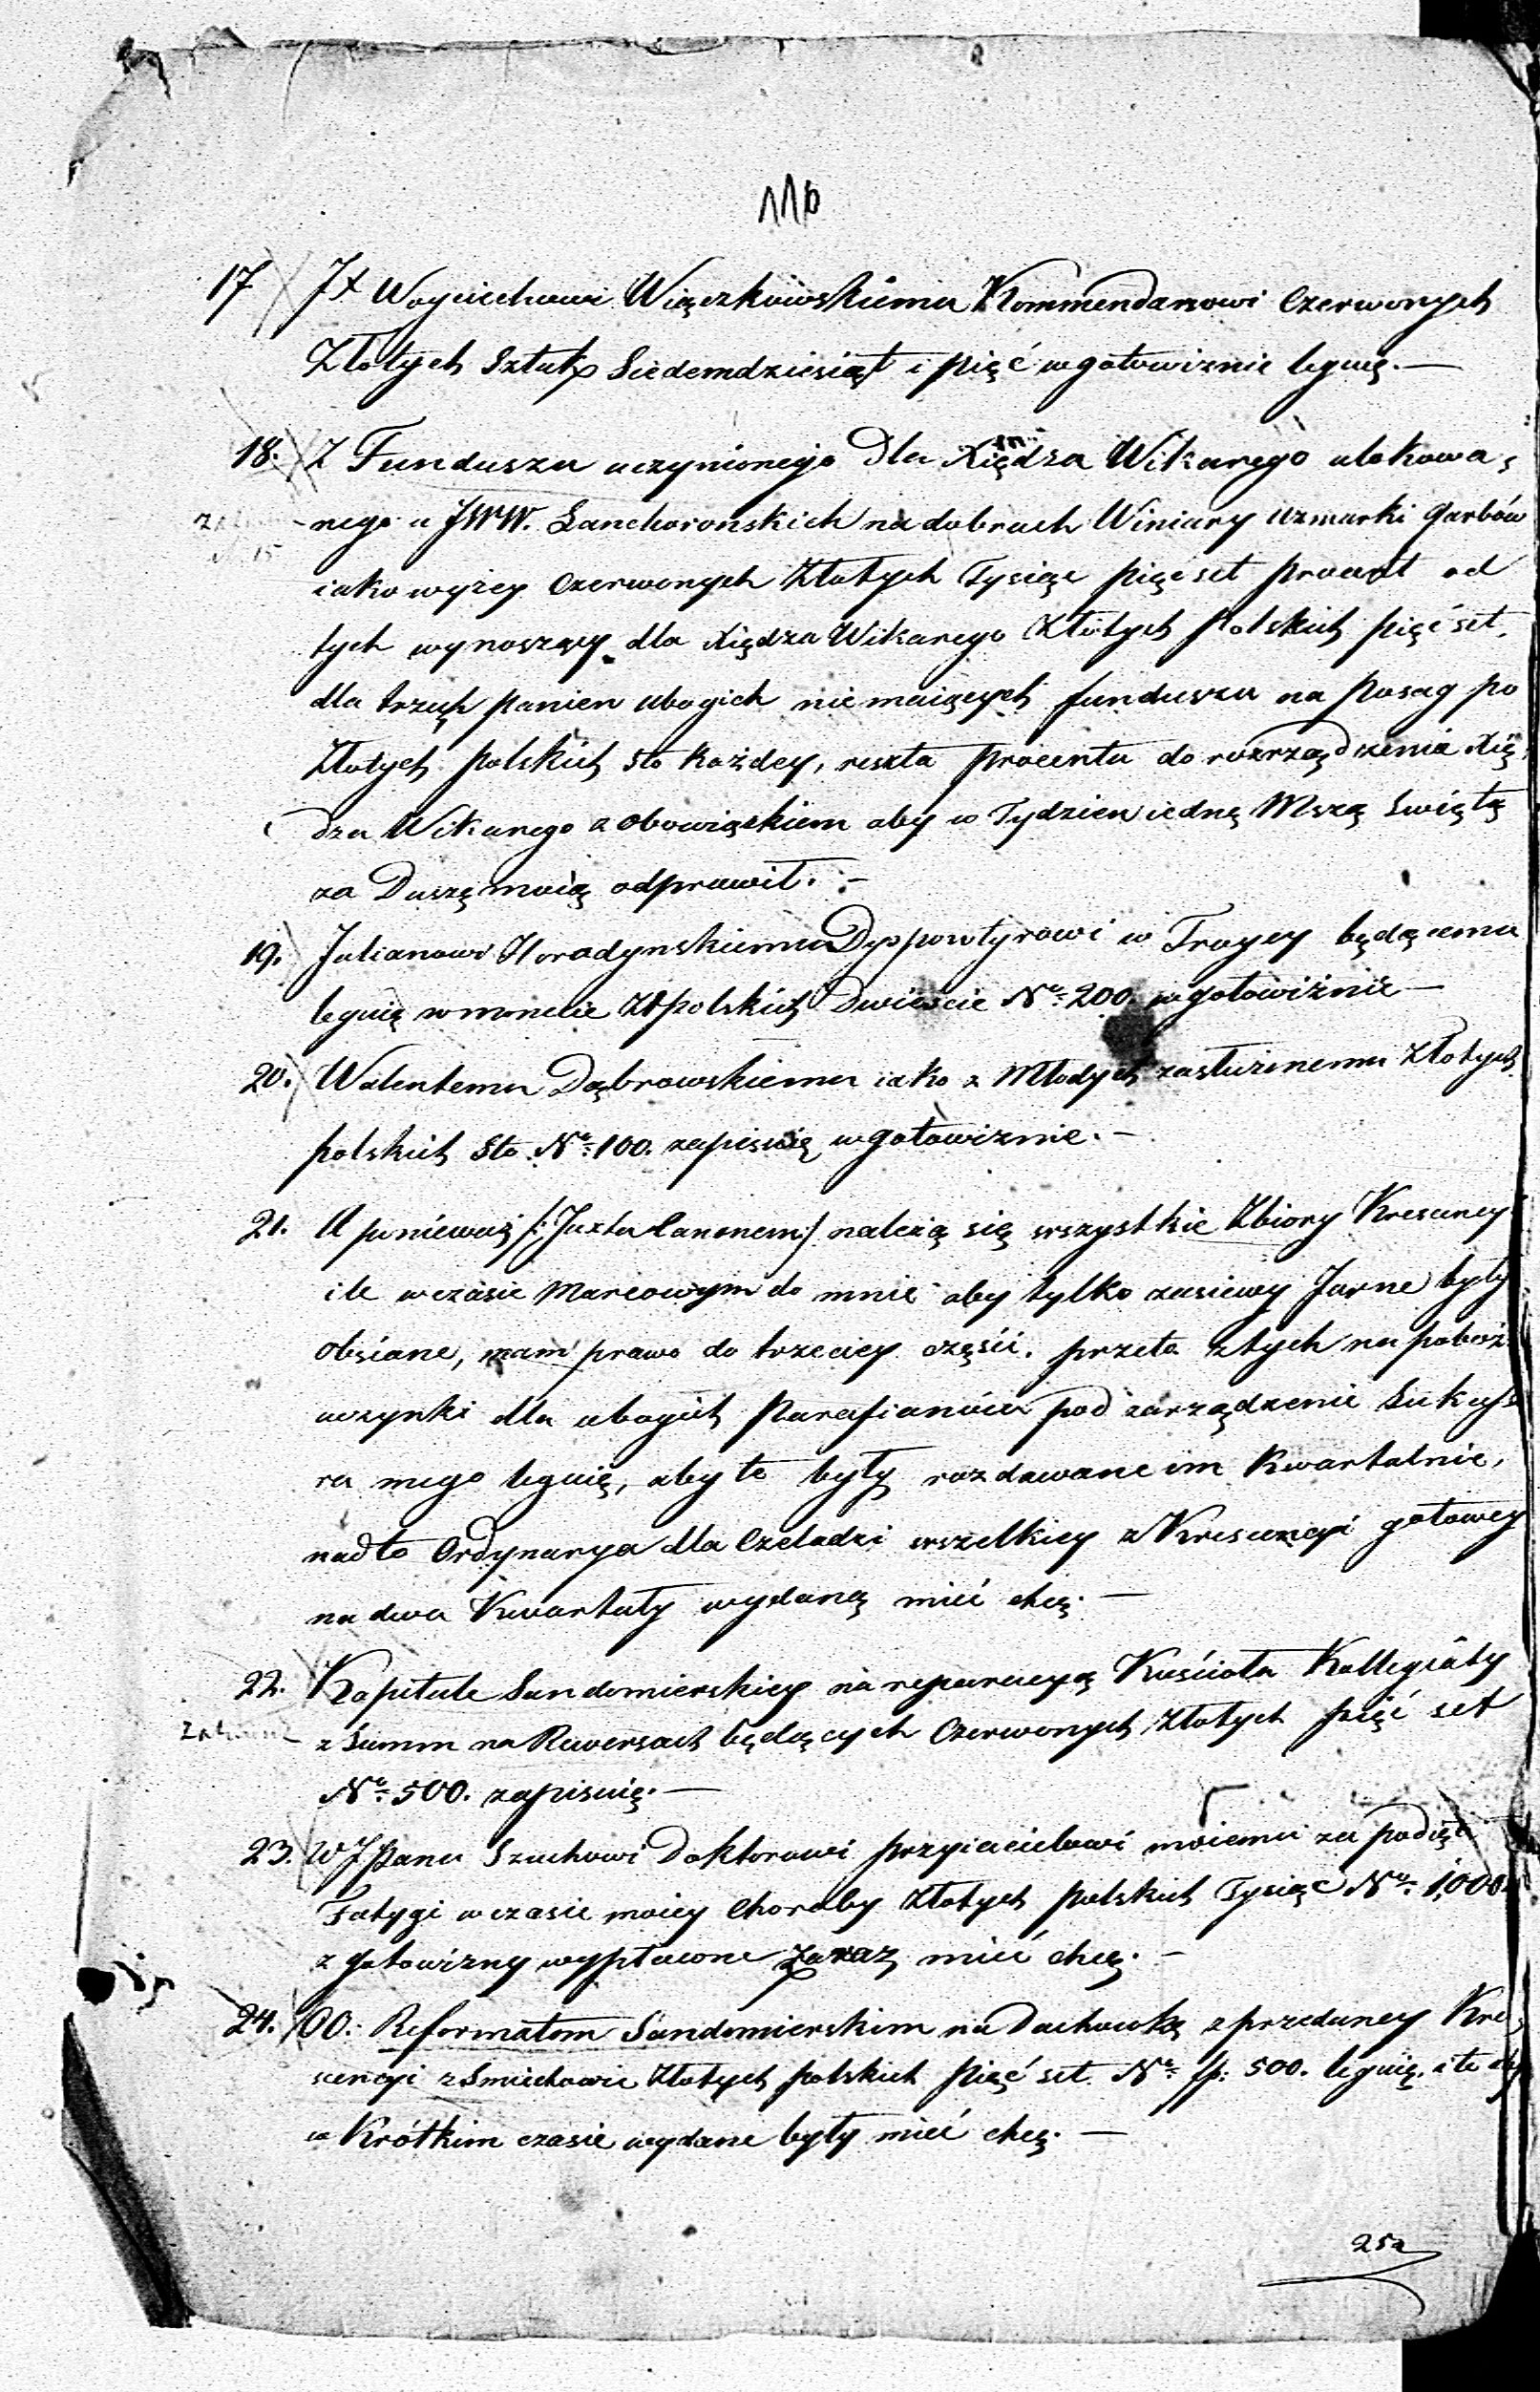 116
17 JX Woyciechowi Wiączkowskiemu Kommendarzowi Czerwonych
Złotych Sztuk Siedemdziesiąt i pięć w gotowiznie leguię. —
18. Z Funduszu uczynionego Dla Xiędza Wikarego ulokowa,
nego u JWW. Lanckorońskich na dobrach Winiary Garbów
iako wyżey Czerwonych Złotych Tysiąc pięćset procent od
tych wynoszący dla Xiędza Wikarego Złotych Polskich pięćset,
dla trzech panien ubogich nie maiących funduszu na Posag po
Złotych polskich sto każdey, reszta procentu do rozrządzenia Xię,
dza Wikarego z obowiązkiem aby w Tydzien iednę Mszą Swiętą
za Duszę moią odprawił. —
19. Julianowi Horodynskiemu w Troycy będącemu
leguię w monecie Złpolskich Dwieście No 200. w gotowiźnie —
20. Walentemu Dąbrowskiemu iako z Młodych zasłużonemu Złotych
polskich Sto No 100. zapisuię w gotowiznie. —
21. A ponieważ /: Juxta Canonem :/ należą się wszystkie Zbiory Krescencyi
ile w czasie Marcowym do mnie aby tylko zasiewy Jarne były
obsiane, mam prawo do trzeciey części. przeto z tych na poboż
uczynki dla ubogich Parafianów pod zarządzenie Sukcesso
ra mego leguię, aby te były rozdawane im Kwartalnie,
nadto Ordynarya dla Czeladzi wszelkiey z Krescencyi gotowey
na dwa Kwartały wydaną mieć chcę. —
22. Kapitule Sandomierskiey na reparacyą Kościoła Kollegiaty
z Summ na Rewersach będących Czerwonych Złotych pięć set
No 500. zapisuię. —
23. WJPanu Szuchowi Doktorowi przyiacielowi moiemu za podięte
Fatygi w czasie moiey Choroby Złotych polskich Tysiąc No 1,000.
z gotowizny wypłacone zaraz mieć chcę. —
24. OO. Reformatom Sandomierskim na Dachówkę z przedaney Kre,
scencyi z Smiechowic Złotych polskich pięć set No fp: 500. leguię. a te aby
w Krótkim czasie wydane były mieć chcę. —